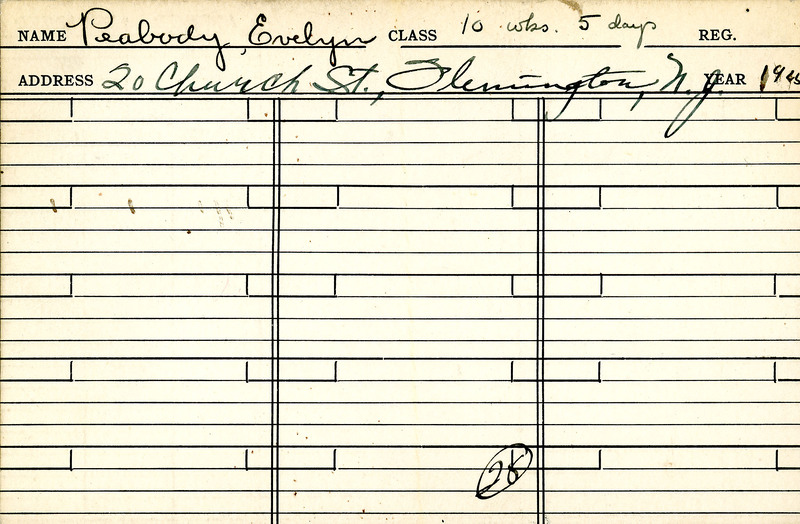 NAME Peabody, Evelyn CLASS 10 wks. 5 days REG.
ADDRESS 20 Church St., Flemington, N.J. YEAR 1945
28